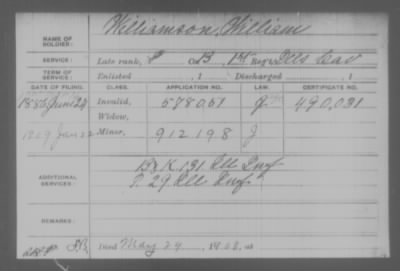 NAME OF SOLDIER: Williamson, William
SERVICE: Late rank, P Co. B, 1st Reg't Ills Cav
TERM OF SERVICE: Enlisted , 1 Discharged , 1
DATE OF FILING. CLASS. APPLICATION NO. LAW. CERTIFICATE NO.
1886 June 24 Invalid, 578,051 490,031
Widow,
1909 Jan 22 Minor, 912198 J
ADDITIONAL SERVICES: K. 131 Ill Inf
29 Ill Inf
REMARKS:
Died May 24, 1908, at